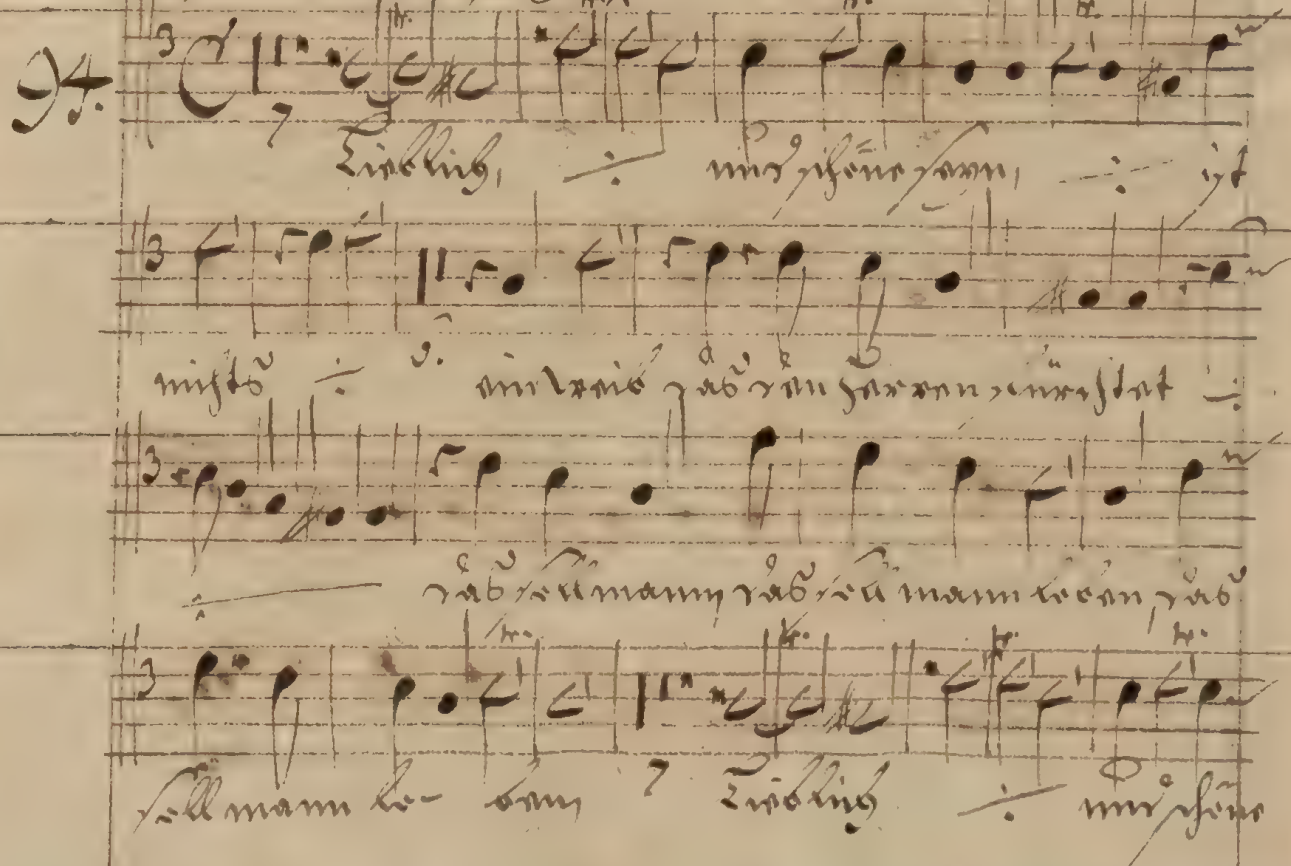 94.
7 Lieblich, ·/· und schöne seyn, ·/· ist
nichts ·/· ein weib das den herren fürchtet ·/·
das soll mann, das soll mann loben, das
soll mann lo- ben, 7 Lieblich ·/· und schöne